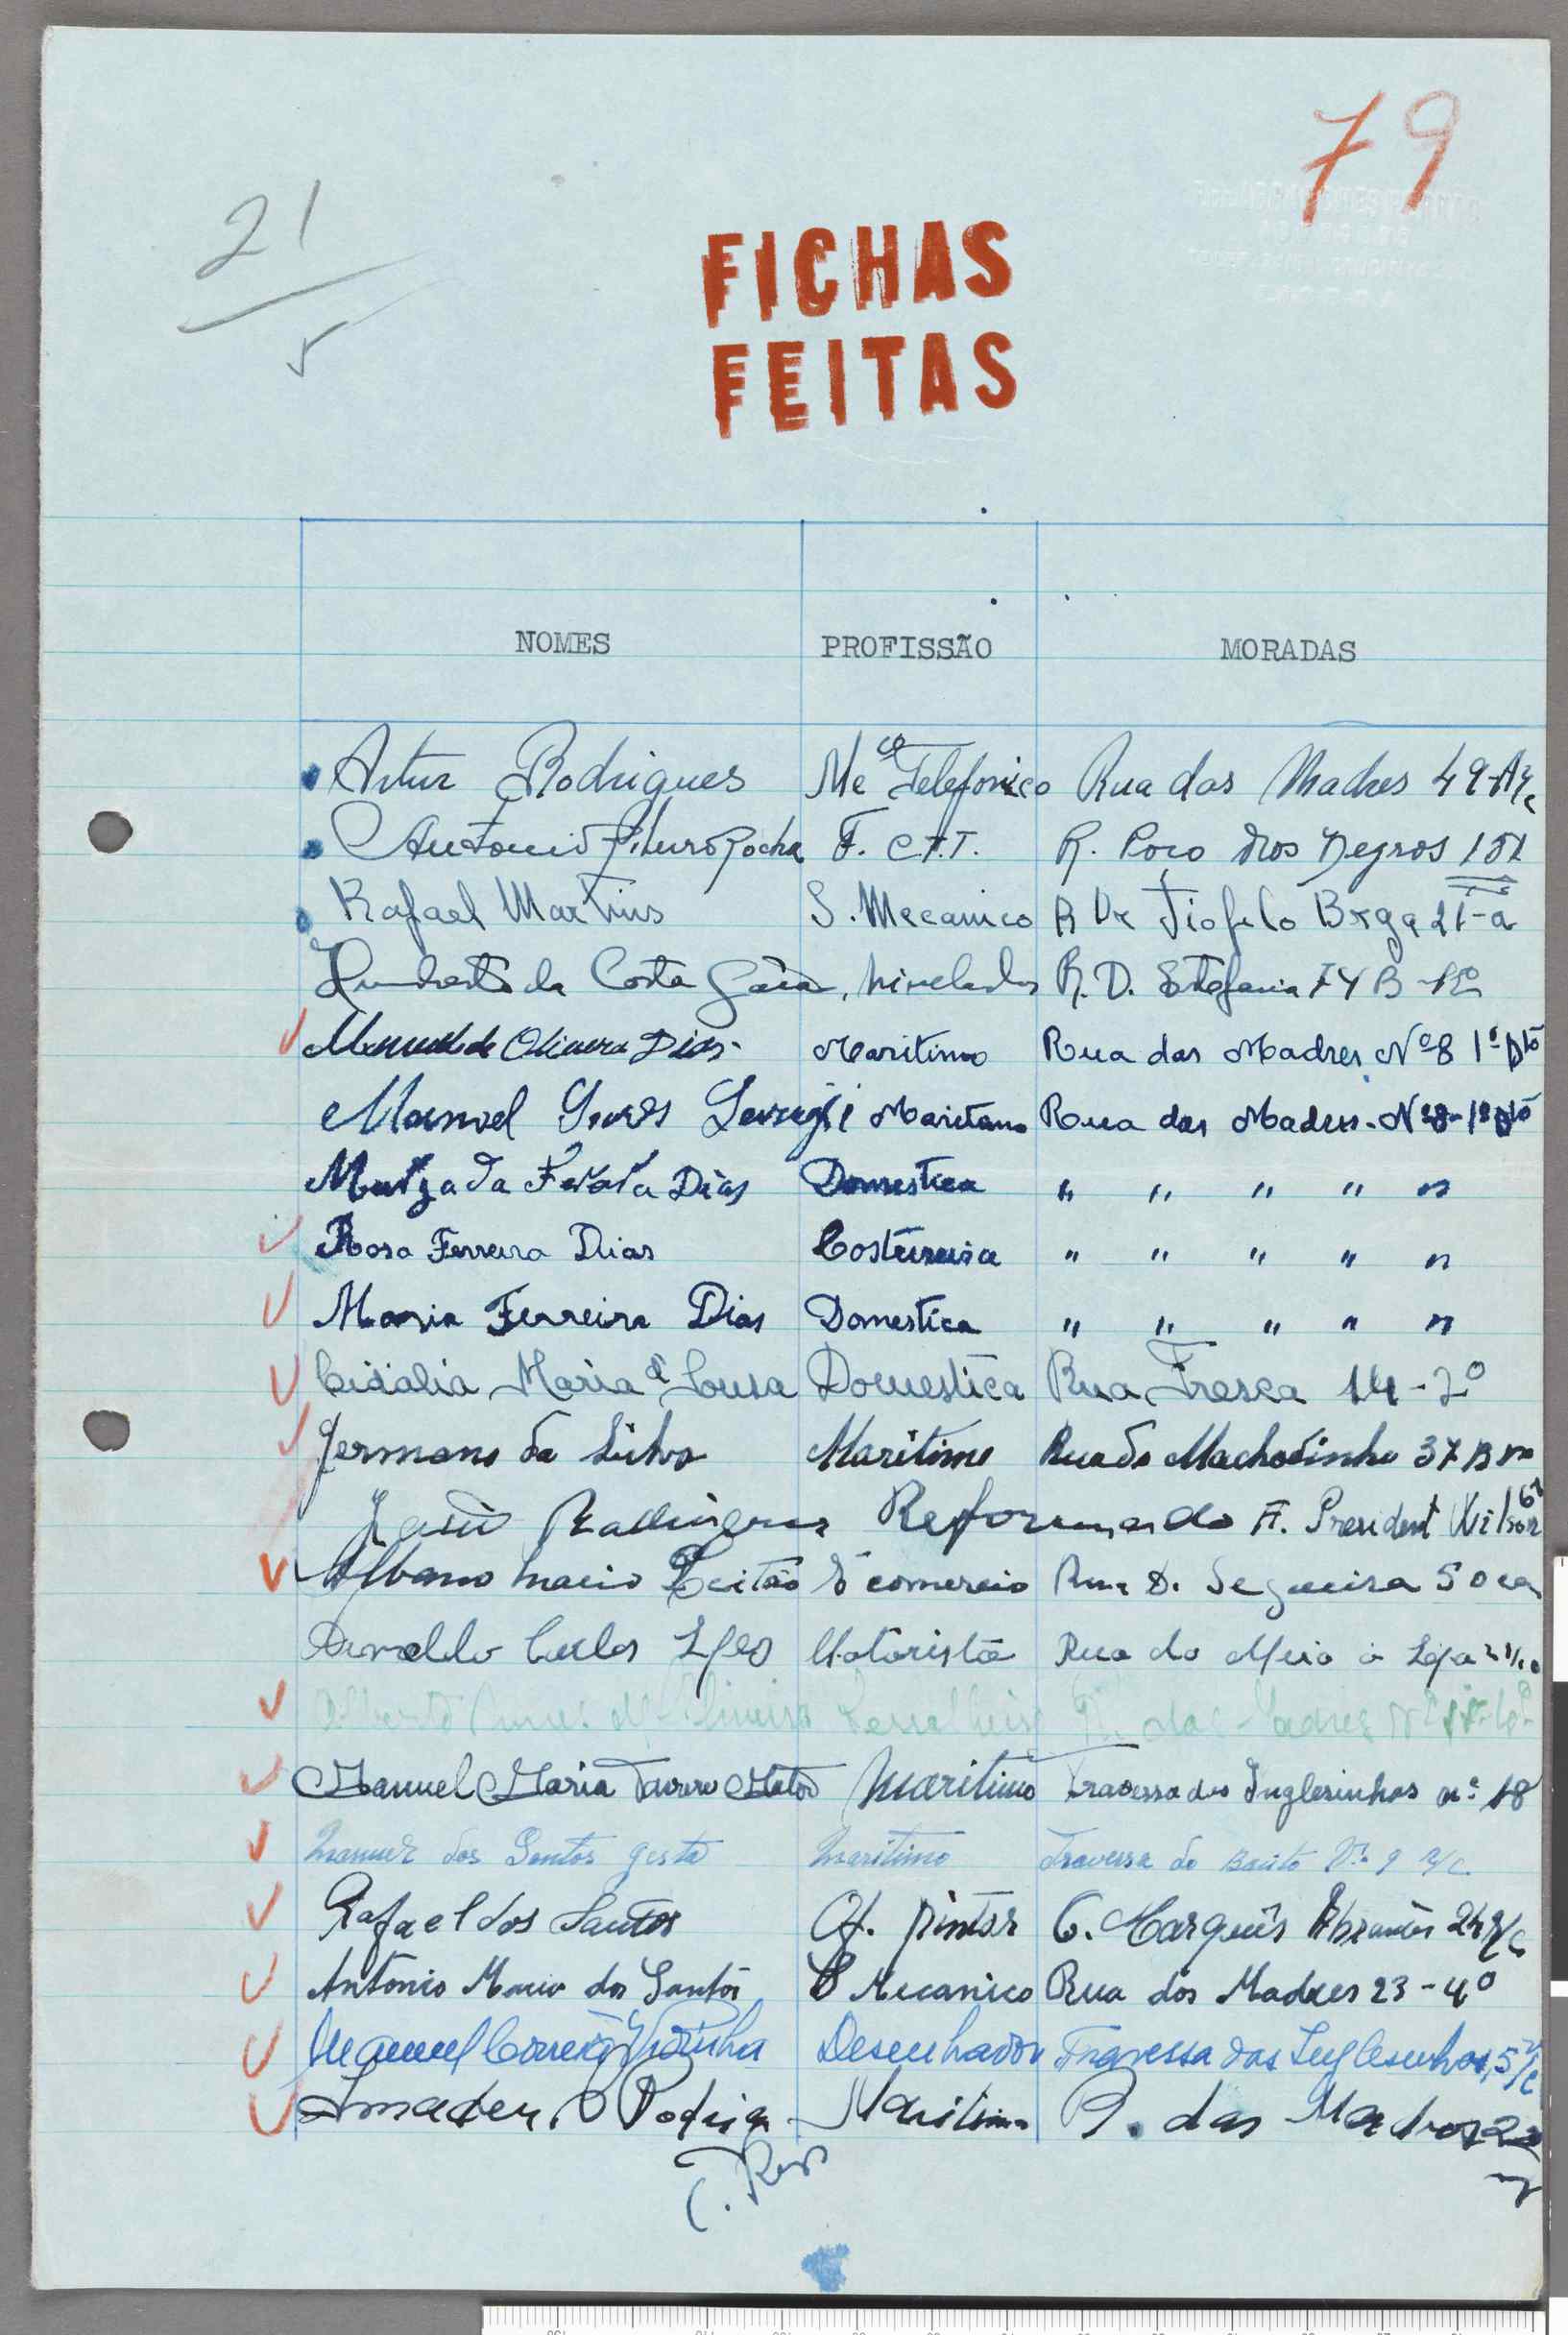 79
21
5
FICHAS
FEITAS
NOMES PROFISSÃO MORADAS
Artur Rodrigues Meco Telefonico Rua das Madres 49-
Antonio Rocha F. C.T.T. R. Poço dos Negros 151
Rafael Martins S. Mecanico R Dr Tiofilo Brga 21-a
Humberto da Costa Nivelador R. D. Estefania 74 B
Manuel de Oliveira Dias Maritimo Rua das Madres Nº 8 1º Dtº
Manuel Maritimo Rua das Madres Nº 8-1º Dtº
Dias Domestica " " " " "
Rosa Ferreira Dias Costureira " " " " "
Maria Ferreira Dias Domestica " " " " "
Cidalia Maria d' Sousa Domestica Rua Fresca 14-2º
Jermano da Silva Maritimo Rua do Machadinho 37
Rodrigues Reformado A. President Wilson
Albano Leitão comercio Rua D. Segueira
Carlos Motorista Rua do Meio à Lapa
Alberto Serralheiro R. das Madres Nº
Manuel Maria Maritimo Travessa dos Inglesinhos nº 18
Manuel dos Santos gesta Maritimo Travessa do 9 r/c
Rafael dos Santos Of. pintor C. Marquês Abrantes
Antonio dos Santos Mecanico Rua das Madres 23-4º
Manuel Correia Desenhador Travessa dos Inglesinhos, 5
Amadeu Maritimo R. das Madres